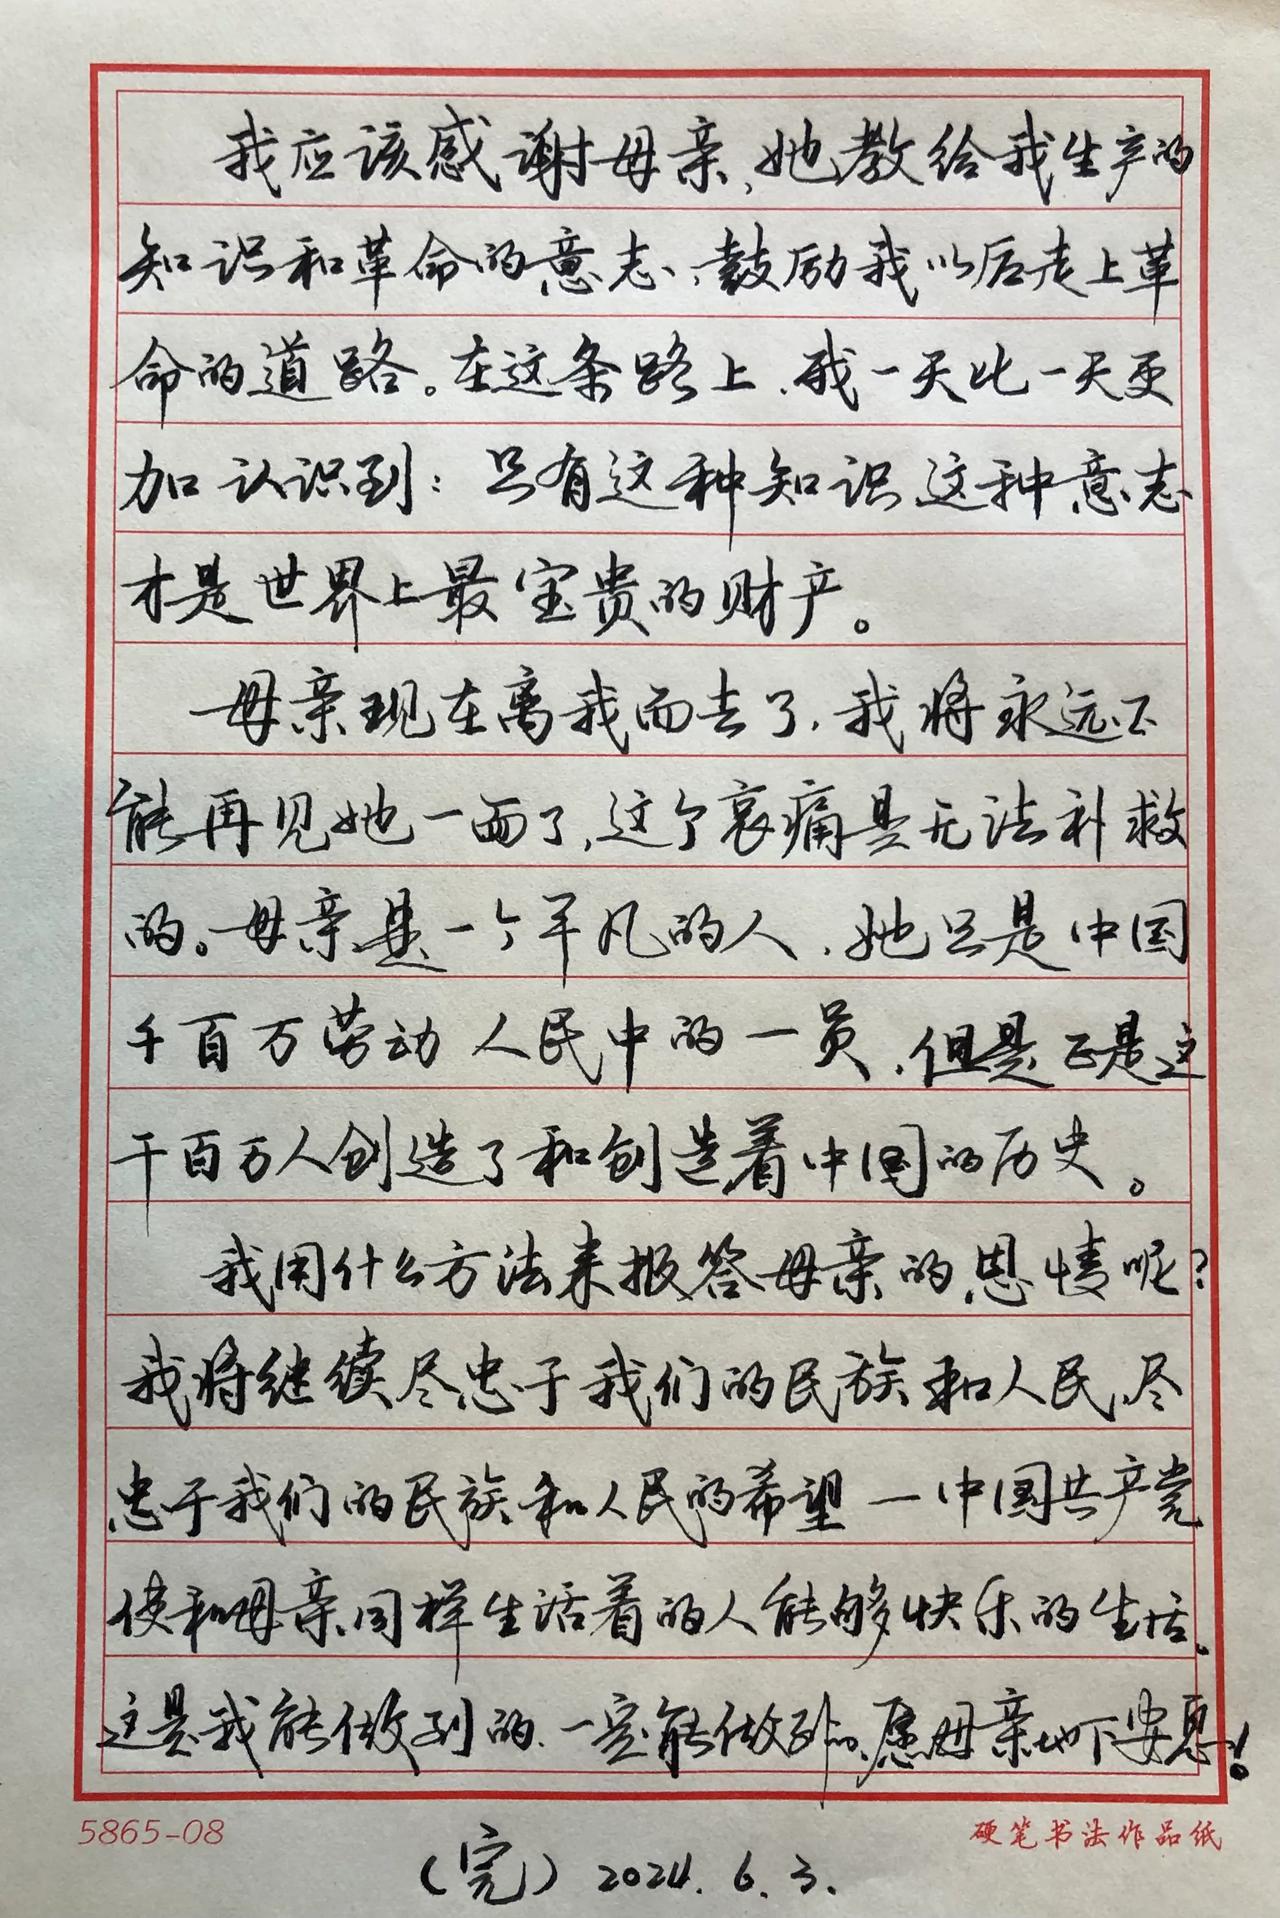 我应该感谢母亲,她教给我生产的
知识和革命的意志,鼓励我以后走上革
命的道路。在这条路上,我一天比一天更
加认识到:只有这种知识,这种意志
才是世界上最宝贵的财产。
母亲现在离我而去了,我将永远不
能再见她一面了,这个哀痛是无法补救
的。母亲是一个平凡的人,她只是中国
千百万劳动人民中的一员,但是正是这
千百万人创造了和创造着中国的历史。
我用什么方法来报答母亲的恩情呢?
我将继续尽忠于我们的民族和人民,尽
忠于我们的民族和人民的希望—中国共产党
使和母亲同样生活着的人能够快乐的生活。
这是我能做到的,一定能做到的。愿母亲地下安息!
5865-08
硬笔书法作品纸
(完) 2024.6.3.